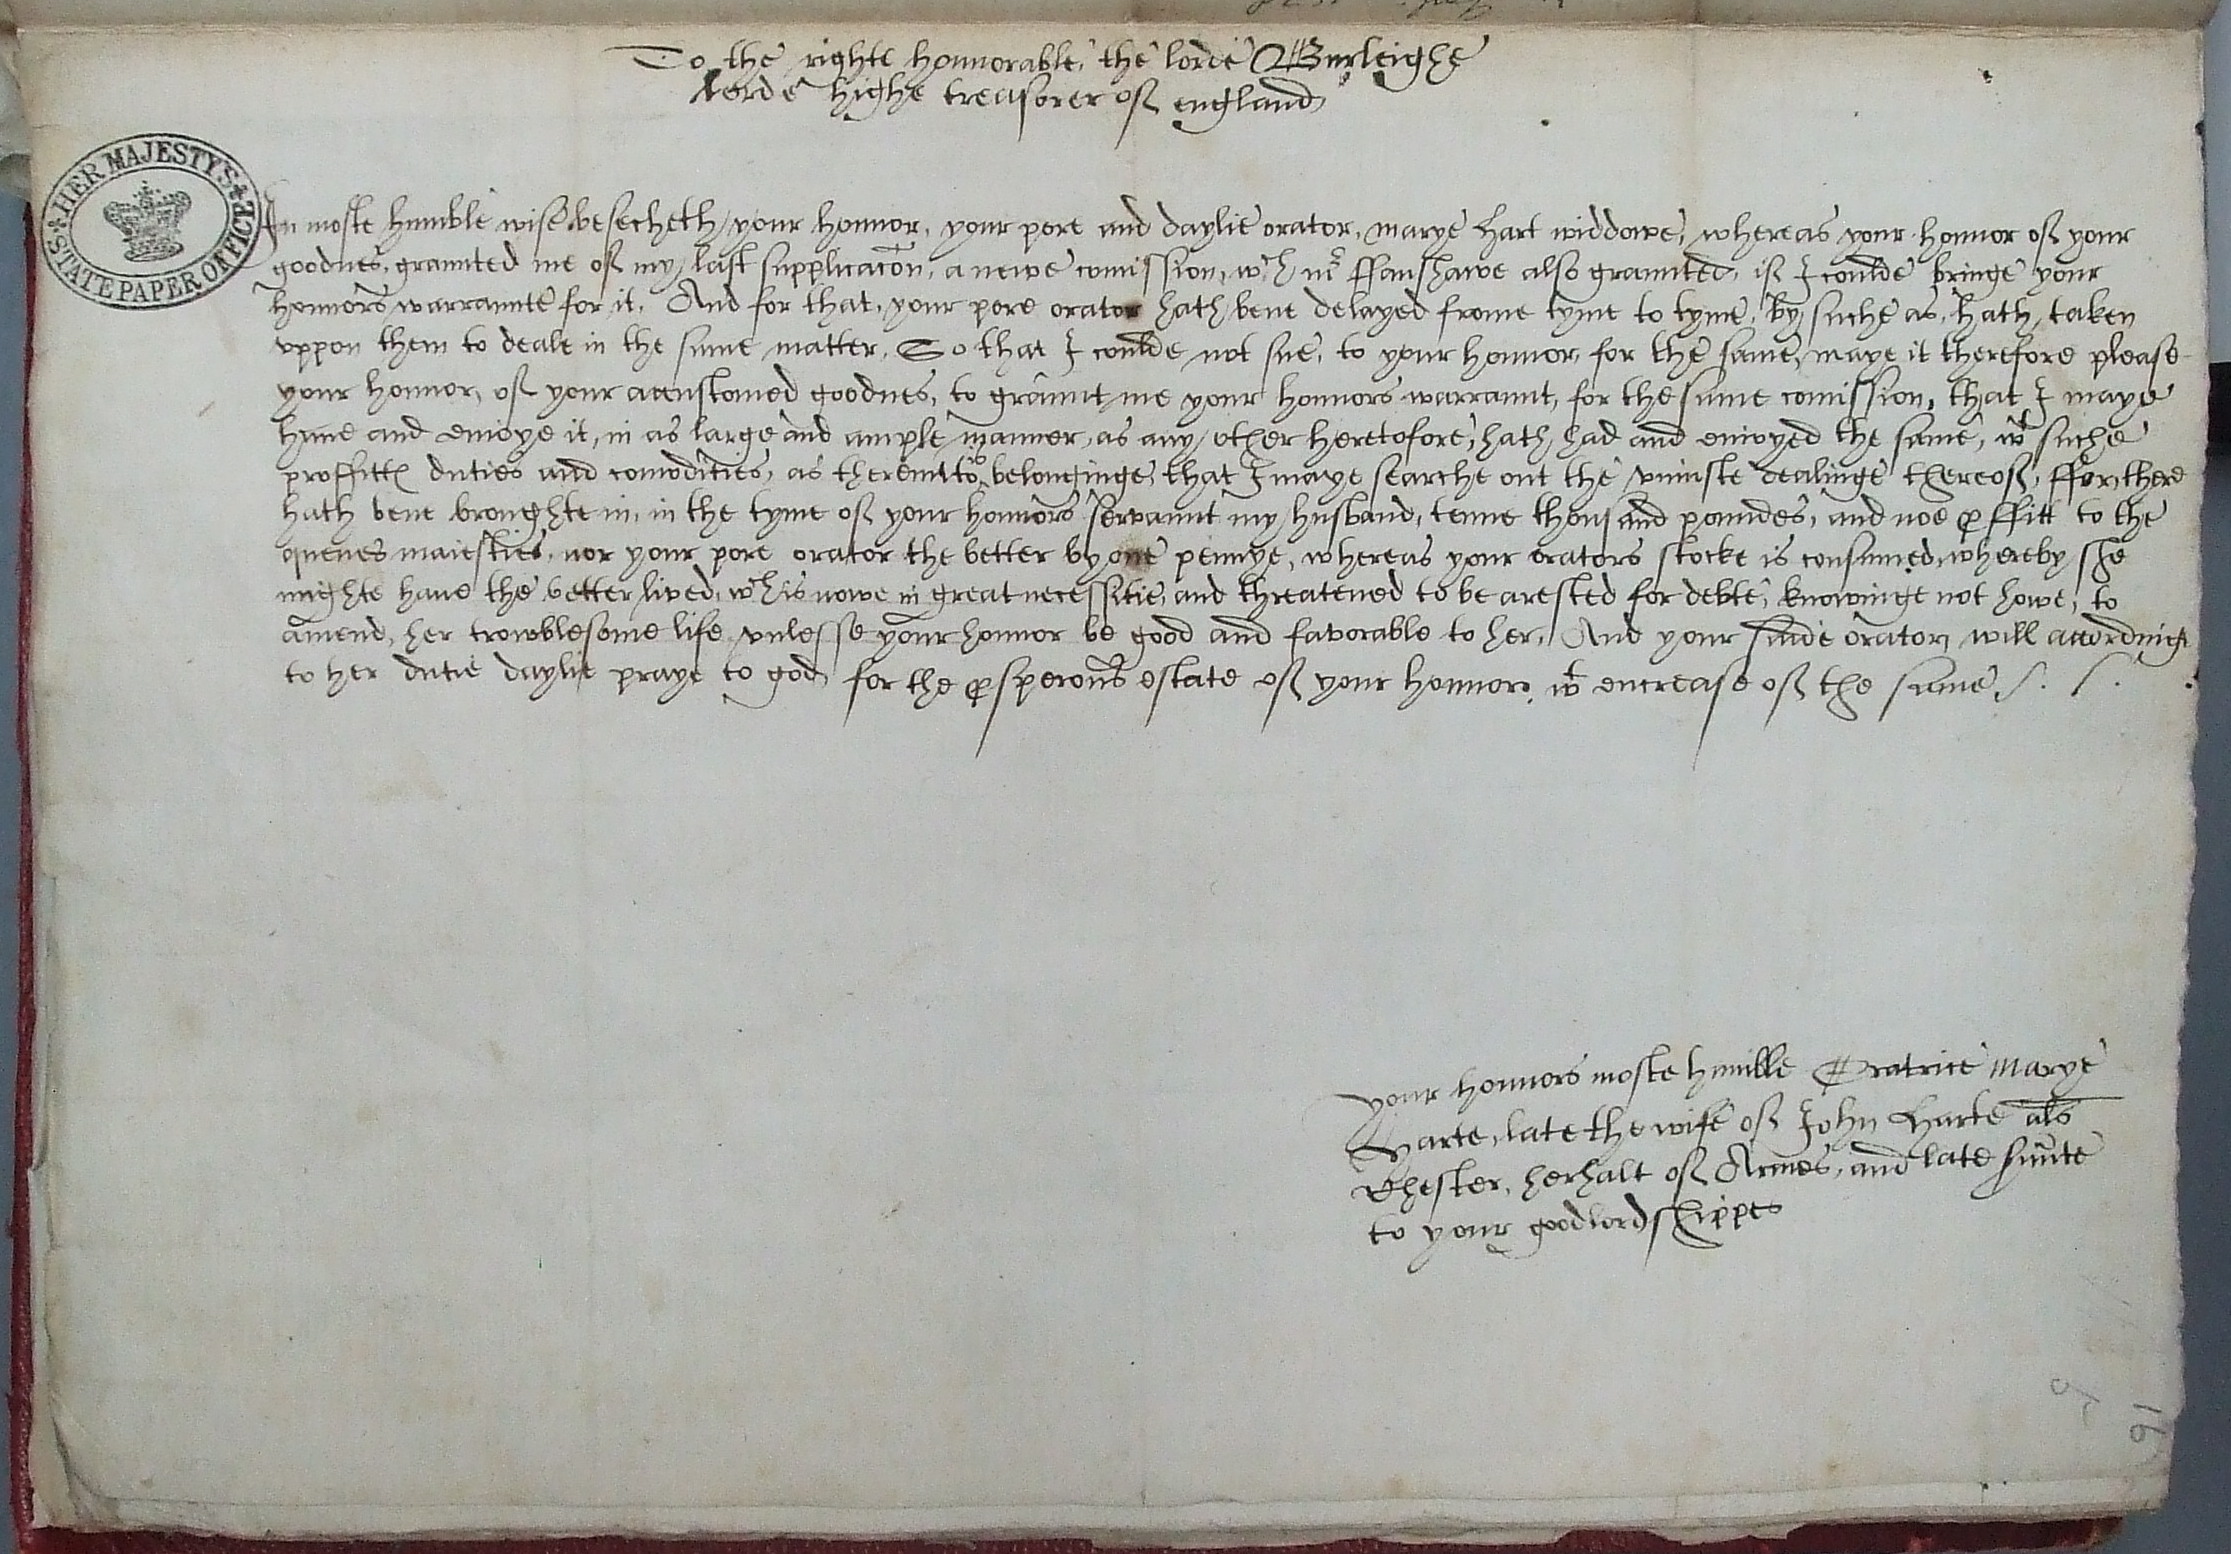 To the righte honnorable, the lorde Burleighe
Lorde highe treasorer of england
HER MAJESTY'S STATE PAPER OFFICE
In moste humble wise besecheth your honnor, your pore and daylie orator, marye Hart widdowe, whereas your honnor of your
goodnes, graunted me of my last supplicacon, a newe comission, wch mr ffanshawe also graunted, if I coulde bringe your
honnors warraunte for it. And for that, your pore orator hath bene delayed frome tyme to tyme, by suche as, hath taken
vppon them to deale in the same matter, So that I coulde not sue, to your honnor, for the same, maye it therefore please
your honnor, of your accustomed goodnes, to graunt me your honnors warraunt, for the same comission, that I maye
haue and enioye it, in as large and ample manner, as any other heretofore, hath had and enioyed the same, wt suche
proffitts duties and comodities, as thereunto belonginge, that I maye searche out the vniuste dealinge thereof, ffor, there
hath bene broughte in, in the tyme of your honnors servaunt my husband, tenne thousand poundes, and noe pffitt to the
quenes maiestie, nor your pore orator the better by one pennye, whereas your orators stocke is consumed, whereby she
mighte haue the better lived, wch is nowe in great necessitie, and threatened to be arested for debte, knowinge not howe, to
amend, her trowblesome life vnlesse your honnor be good and favorable to her, And your saide orator, will accordinge
to her dutie daylie praye to god, for the psperous estate of your honnor, wt encrease of the same
your honnors moste humble Oratrice Marye
Harte, late the wife of John Harte als
Chester, herhalt of Armes, and late srunte
to your good lordshippe
16